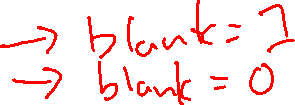 → blank = 1
→ blank = 0